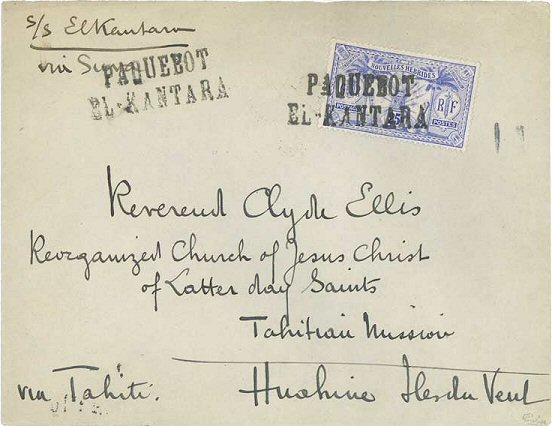 s/s El Kantara
via Suva
PAQUEBOT
EL-KANTARA
NOUVELLES HEBRIDES
R F
POSTES
25c
POSTES
PAQUEBOT
EL-KANTARA
Reverend Clyde Ellis
Reorganized Church of Jesus Christ
of Latter day Saints
Tahitian Mission
via Tahiti.
Huahine Iles du Vent